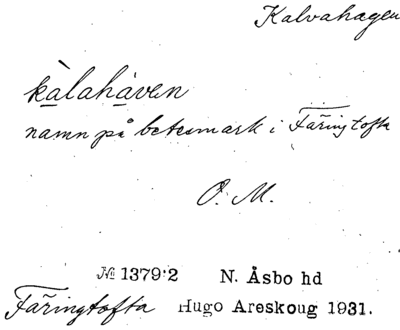 Kalvahagen
kàlahàven
namn på betesmark i Färingtofta
O. M.
№ 1379:2 N. Åsbo hd
Färingtofta Hugo Areskoug 1931.